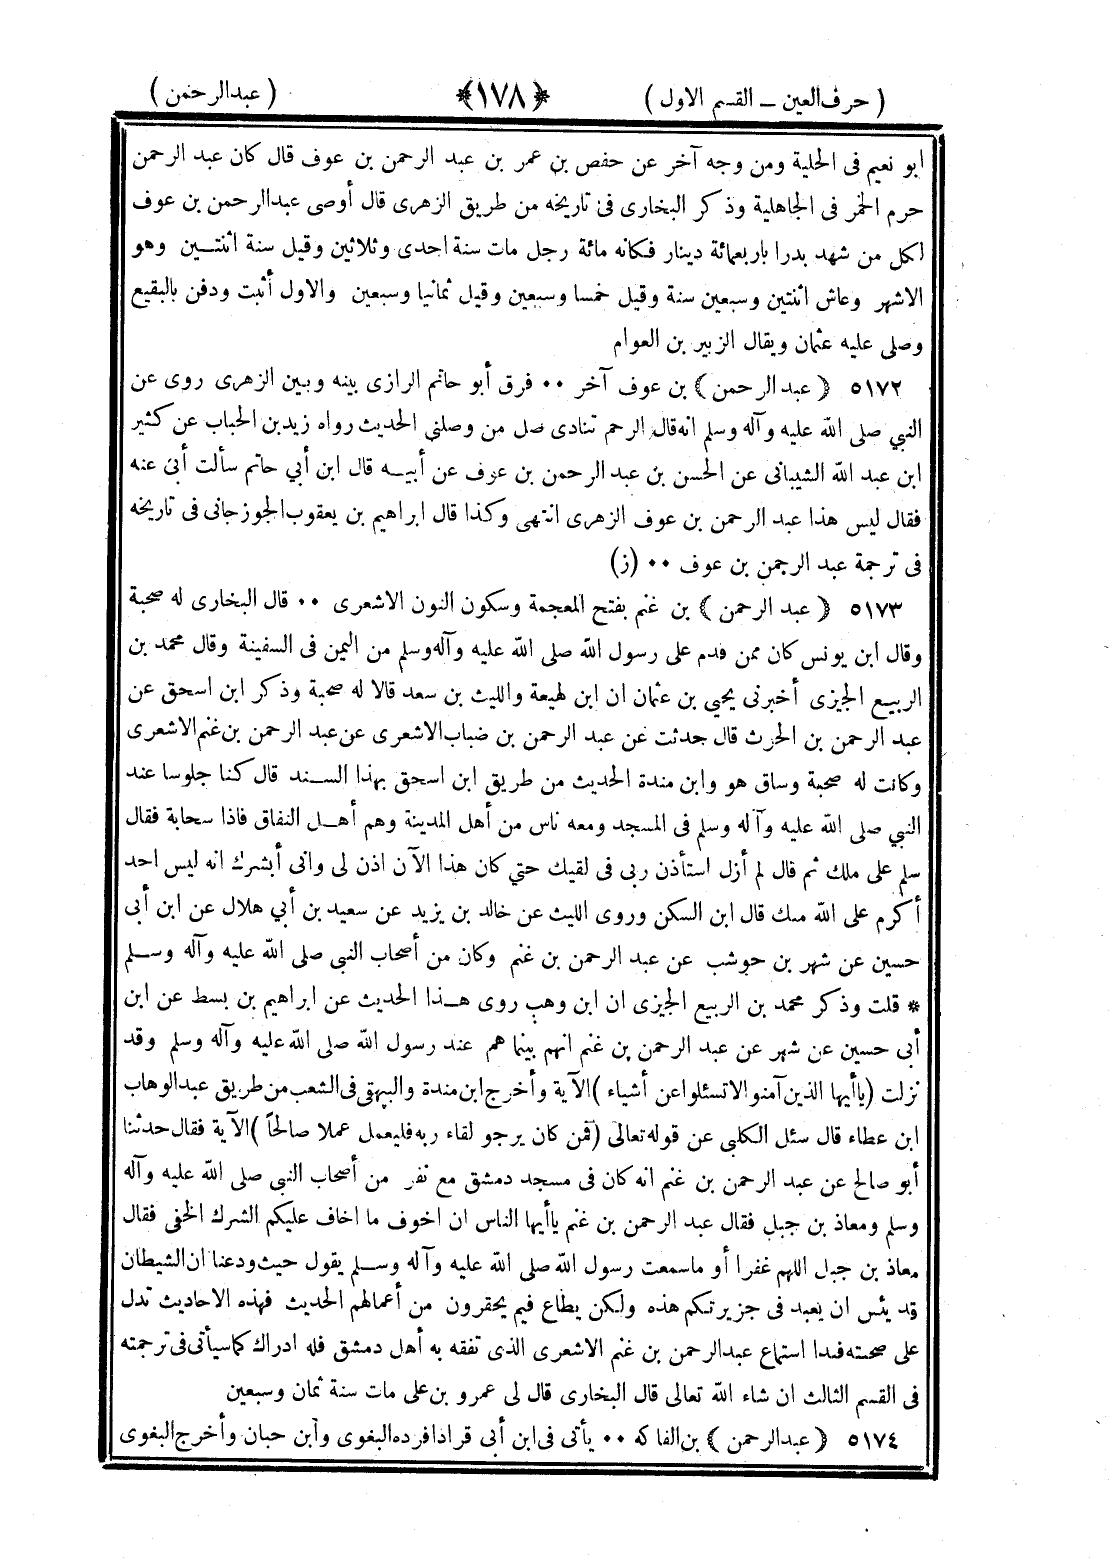 ( حرف العين ـ القسم الاول ) ﴿١٧٨﴾ ( عبدالرحمن )
ابو نعيم فى الحلية ومن وجه آخر عن حفص بن عمر بن عبد الرحمن بن عوف قال كان عبد الرحمن
حرم الخمر فى الجاهلية وذكر البخارى فى تاريخه من طريق الزهرى قال أوصى عبدالرحمن بن عوف
لكل من شهد بدرا باربعمائة دينار فكانه مائة رجل مات سنة احدى وثلاثين وقيل سنة اثنتــين وهو
الاشهر وعاش اثنتين وسبعين سنة وقيل خمسا وسبعين وقيل ثمانيا وسبعين والاول أثبت ودفن بالبقيع
وصلى عليه عثمان ويقال الزبير بن العوام
٥١٧٢ ﴿ عبد الرحمن ﴾ بن عوف آخر ٠٠ فرق أبو حاتم الرازى بينه وبين الزهرى روى عن
النبي صلى الله عليه وآله وسلم انه قال الرحم تنادى صل من وصلني الحديث رواه زيد بن الحباب عن كثير
ابن عبد الله الشيبانى عن الحسن بن عبد الرحمن بن عوف عن أبيــه قال ابن أبي حاتم سألت أبى عنه
فقال ليس هذا عبد الرحمن بن عوف الزهرى انتهى وكذا قال ابراهيم بن يعقوب الجوزجانى فى تاريخه
فى ترجمة عبد الرحمن بن عوف ٠٠ (ز)
٥١٧٣ ﴿ عبد الرحمن ﴾ بن غنم بفتح المعجمة وسكون النون الاشعرى ٠٠ قال البخارى له صحبة
وقال ابن يونس كان ممن قدم على رسول الله صلى الله عليه وآله وسلم من اليمن فى السفينة وقال محمد بن
الربيع الجيزى أخبرنى يحيي بن عثمان ان ابن لهيعة والليث بن سعد قالا له صحبة وذكر ابن اسحق عن
عبد الرحمن بن الحرث قال حدثت عن عبد الرحمن بن ضباب الاشعرى عن عبد الرحمن بن غنم الاشعرى
وكانت له صحبة وساق هو وابن مندة الحديث من طريق ابن اسحق بهذا الســند قال كنا جلوسا عند
النبي صلى الله عليه وآله وسلم فى المسجد ومعه ناس من أهل المدينة وهم أهــل النفاق فاذا سحابة فقال
سلم على ملك ثم قال لم أزل استأذن ربى فى لقيك حتي كان هذا الآن اذن لى وانى أبشرك انه ليس احد
أكرم على الله منك قال ابن السكن وروى الليث عن خالد بن يزيد عن سعيد بن أبي هلال عن ابن أبى
حسين عن شهر بن حوشب عن عبد الرحمن بن غنم وكان من أصحاب النبي صلى الله عليه وآله وســلم
* قلت وذكر محمد بن الربيع الجيزى ان ابن وهب روى هــذا الحديث عن ابراهيم بن بسط عن ابن
أبى حسين عن شهر عن عبد الرحمن بن غنم انهم بينما هم عند رسول الله صلى الله عليه وآله وسلم وقد
نزلت (ياأيها الذين آمنوا لاتسئلوا عن أشياء ) الآية وأخرج ابن مندة والبيهقى فى الشعب من طريق عبدالوهاب
ابن عطاء قال سئل الكلبى عن قوله تعالى (فمن كان يرجو لقاء ربه فليعمل عملا صالحاً ) الآية فقال حدثنا
أبو صالح عن عبد الرحمن بن غنم انه كان فى مسجد دمشق مع نفر من أصحاب النبى صلى الله عليه وآله
وسلم ومعاذ بن جبل فقال عبد الرحمن بن غنم ياأيها الناس ان اخوف ما اخاف عليكم الشرك الخفى فقال
معاذ بن جبل اللهم غفرا أو ماسمعت رسول الله صلى الله عليه وآله وســلم يقول حيث ودعنا ان الشيطان
قد يئس ان يعبد فى جزيرتكم هذه ولكن يطاع فيم يحقرون من أعمالهم الحديث فهذه الاحاديث تدل
على صحبته فبدا استماع عبدالرحمن بن غنم الاشعرى الذى تفقه به أهل دمشق فله ادراك كما سيأتى فى ترجمته
فى القسم الثالث ان شاء الله تعالى قال البخارى قال لى عمرو بن على مات سنة ثمان وسبعين
٥١٧٤ ﴿ عبدالرحمن ﴾ بن الفاكه ٠٠ يأتى فى ابن أبى قراد افرده البغوى وابن حبان وأخرج البغوى